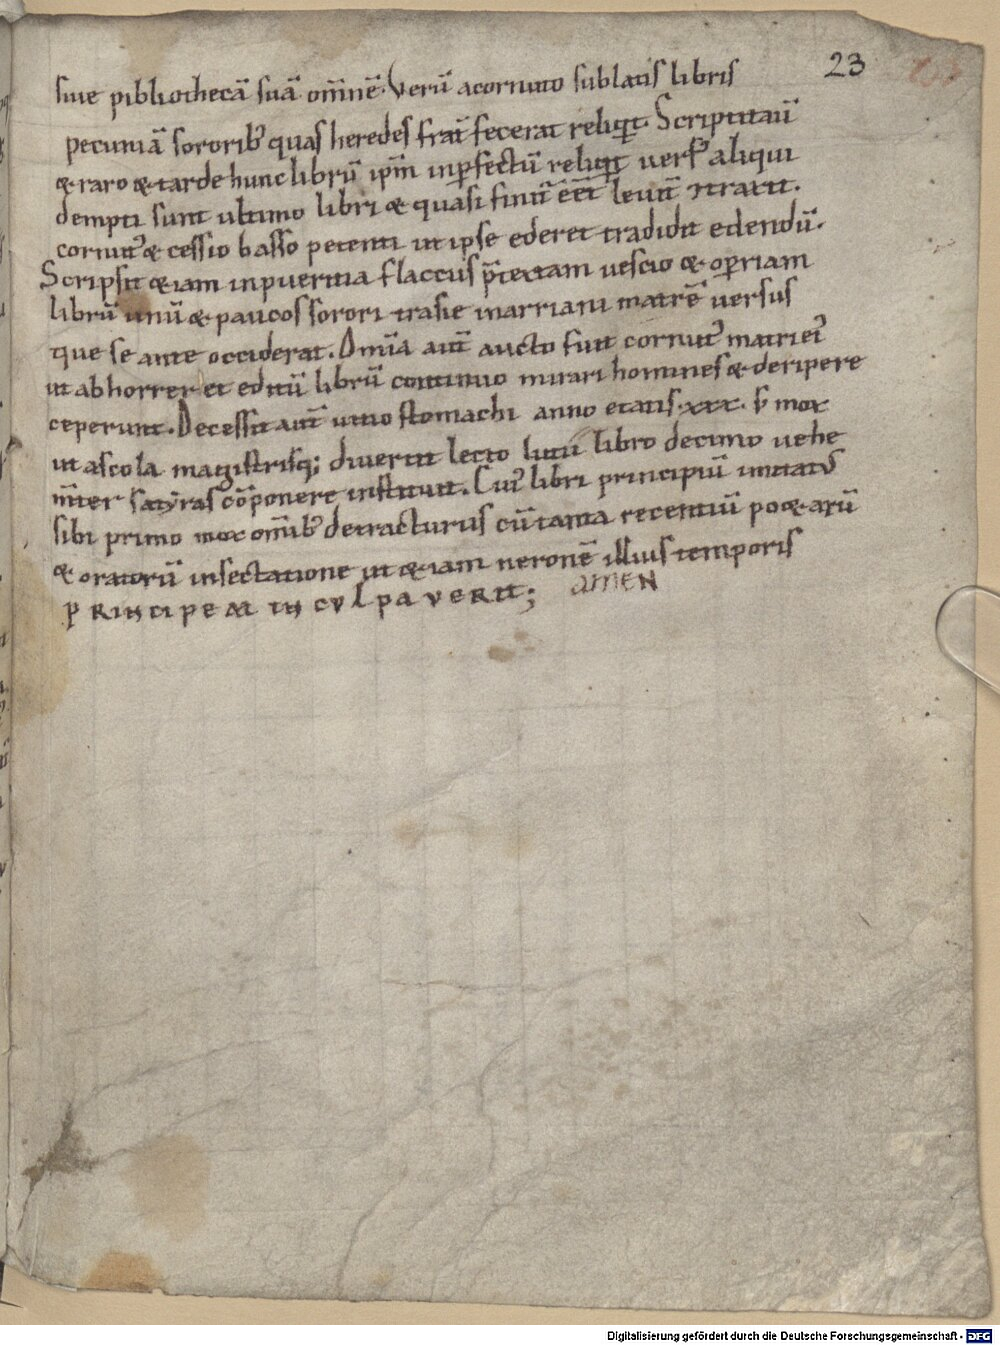 23
siue pibliothecā suā om̄nē. Verū acornuto sublatis libris
pecuniā sororib; quas heredes frat̄ fecerat reliqt̄. Scriptitaū
& raro & tarde hunc librū ip̄m inꝑfectū reliqt̄ uers; aliqui
dempti sunt ultimo libri & quasi finit̄ eēt leuit̄ ꝛtraxit.
cornut; & cessio basso petenti ut ipse ederet tradidit edendū.
Scripsit & iam inpueritia flaccus p̄textam uescio & opericam
librū unū & paucos sorori trasie inarriani matrē uersus
que se ante occiderat. Omīa aut̄ aucto fuit cornut; matri ei;
ut abhorrer et editū librū continuo mirari homines & deripere
ceperunt. Decessit aut̄ uitio stomachi anno etatis .xxx. s; mox
ut ascola magistrisq; diuertit lecto lutū libro decimo uehe
m̄ter satyras cōponere instituit. Cui; libri principiū imitat;
sibi primo mox om̄ib; detracturus cū tanta recentiū po&arū
& oratorū insectatione ut & iam neronē illius temporis
pRINCIPEM INCVLPAVERIT; AMEN
Digitalisierung gefördert durch die Deutsche Forschungsgemeinschaft - DFG